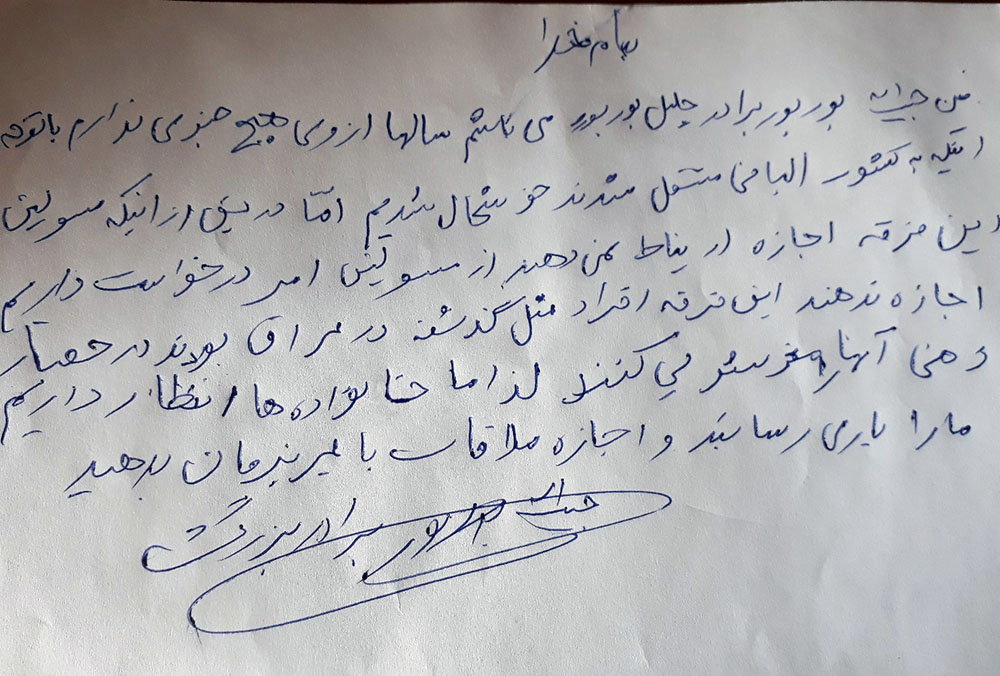 بنام خدا
من حبیب اله بور بور برادر جلیل بور بور می باشم سالها از وی هیچ خبری ندارم باتوجه
اینکه به کشور البانی منتقل شدند خوشحال شدیم امّا دریق از اینکه مسولین
این فرقه اجازه ارتباط نمی دهند از مسولین امر درخواست داریم
اجازه ندهند این فرقه افراد مثل گذشته در عراق بودند در حصار
ذهنی آنها مغزشو می کنند لذا ما خانواده ها انتظار داریم
مارا یاری رسانند و اجازه ملاقات با عزیزمان بدهید
بور بور برادر بزرگ